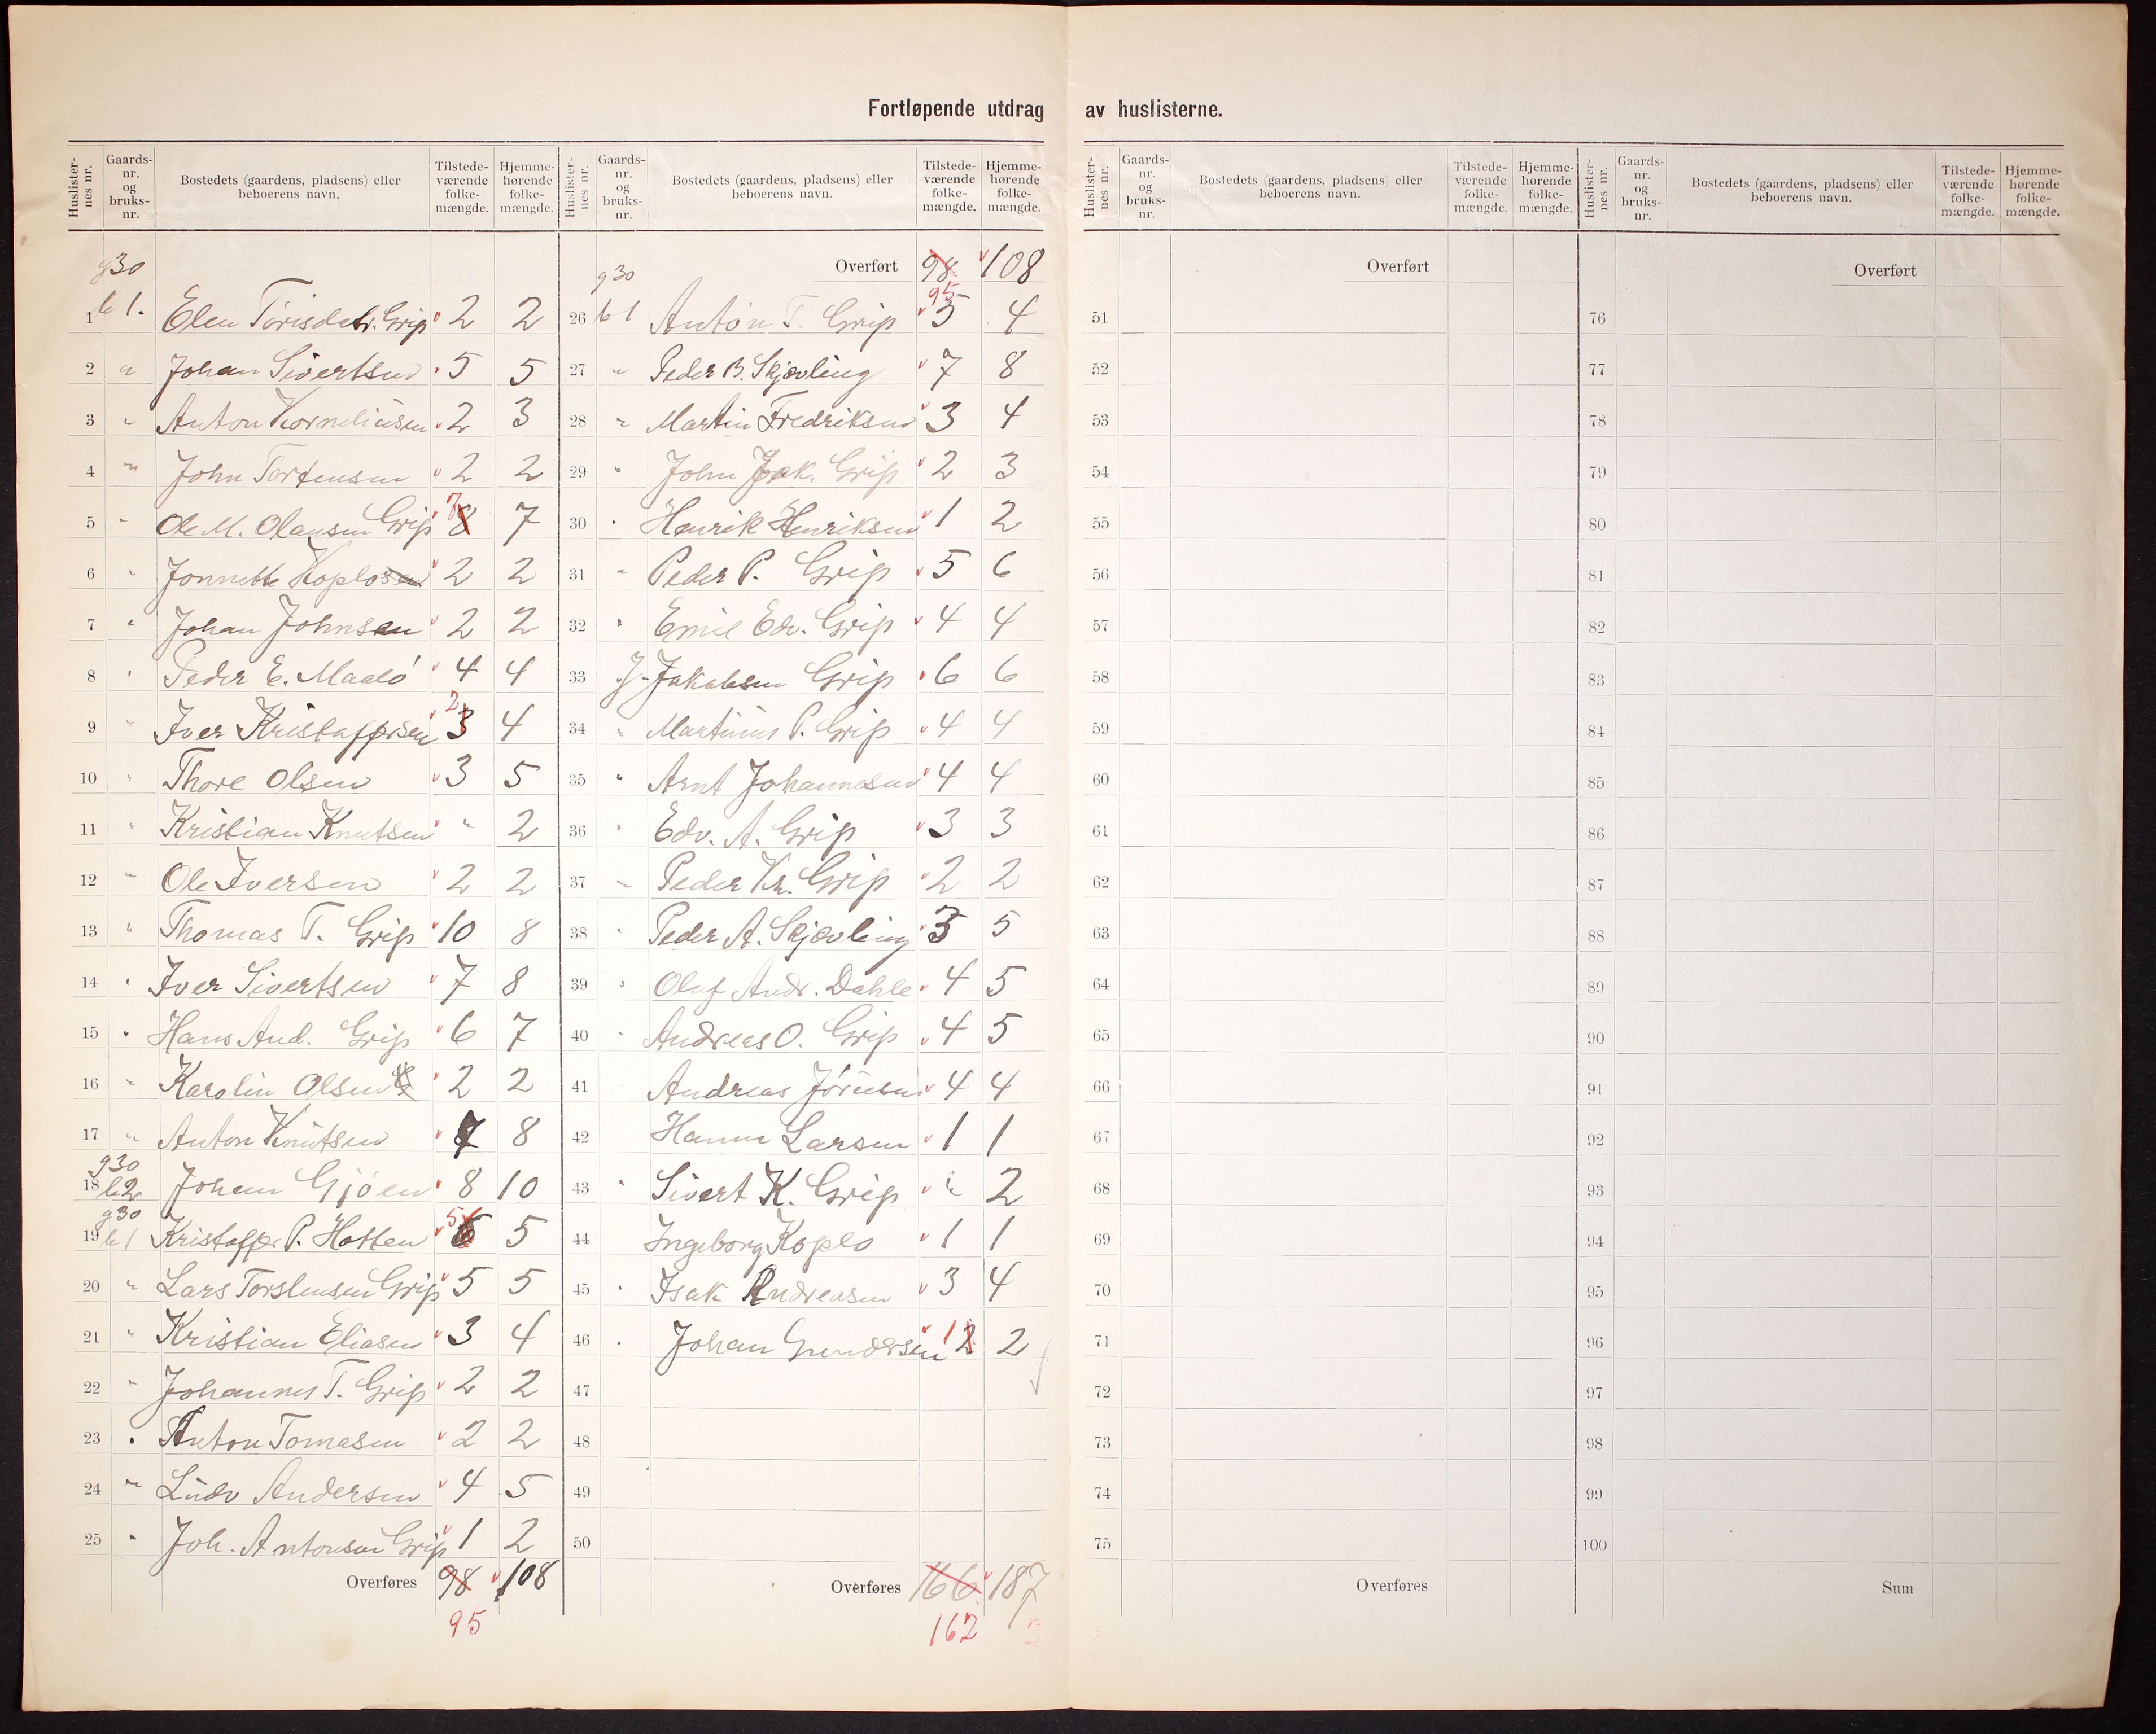 Fortløpende utdrag av huslisterne.
Huslister-nes nr. Gaards-nr. og bruks-nr. Bostedets (gaardens, pladsens) eller beboerens navn. Tilstede-værende folke-mængde. Hjemme-hørende folke-mængde.
g30
1 b 1. Elen Torisdatr. Grip 2 2
2 " Johan Sivertsen 5 5
3 " Anton Korneliusen 2 3
4 " John Torstensen 2 2
5 " Ole M. Olausen Grip 8 7 7
6 " Jonnette Koplosen 2 2
7 " Johan Johnsen 2 2
8 " Peder E. Maalö 4 4
9 " Iver Kristoffersen 3 2 4
10 " Thore Olsen 3 5
11 " Kristian Knutsen " 2
12 " Ole Iversen 2 2
13 " Thomas T. Grip 10 8
14 " Iver Sivertsen 7 8
15 " Hans And. Grip 6 7
16 " Karolin Olsen 2 2
17 " Anton Knutsen 7 8
g30
18 b2 Johan Gjöen 8 10
g30
19 b1 Kristoffer P. Hatten 6 5 5
20 " Lars Torstensen Grip 5 5
21 " Kristian Eliasen 3 4
22 " Johannes T. Grip 2 2
23 " Anton Tomasen 2 2
24 " Ludv Andersen 4 5
25 " Joh. Antonsen Grip 1 2
Overføres 98 108
95
Huslister-nes nr. Gaards-nr. og bruks-nr. Bostedets (gaardens, pladsens) eller beboerens navn. Tilstede-værende folke-mængde. Hjemme-hørende folke-mængde.
g30 Overført 98 108
95
26 b 1 Anton T. Grip 3 4
27 " Peder B. Skjøvling 7 8
28 " Martin Fredriksen 3 4
29 " John Jak. Grip 2 3
30 " Henrik Henriksen 1 2
31 " Peder P. Grip 5 6
32 " Emil Edv. Grip 4 4
33 J. Jakobsen Grip 6 6
34 " Martinus P. Grip 4 4
35 " Arnt Johannesen 4 4
36 " Edv. A. Grip 3 3
37 " Peder Kr. Grip 2 2
38 " Peder A. Skjøvling 3 5
39 " Oluf Andr. Dahle 4 5
40 " Andreas O. Grip 4 5
41 Andreas Jörnsen 4 4
42 Hanna Larsen 1 1
43 " Sivert K. Grip " 2
44 Ingeborg Koplo 1 1
45 " Isak Andreasen 3 4
46 " Johan Gundersen 1 2 2
47
48
49
50
Overføres 166 187
162
Huslister-nes nr. Gaards-nr. og bruks-nr. Bostedets (gaardens, pladsens) eller beboerens navn. Tilstede-værende folke-mængde. Hjemme-hørende folke-mængde.
Overført
51
52
53
54
55
56
57
58
59
60
61
62
63
64
65
66
67
68
69
70
71
72
73
74
75
Overføres
Huslister-nes nr. Gaards-nr. og bruks-nr. Bostedets (gaardens, pladsens) eller beboerens navn. Tilstede-værende folke-mængde. Hjemme-hørende folke-mængde.
Overført
76
77
78
79
80
81
82
83
84
85
86
87
88
89
90
91
92
93
94
95
96
97
98
99
100
Sum